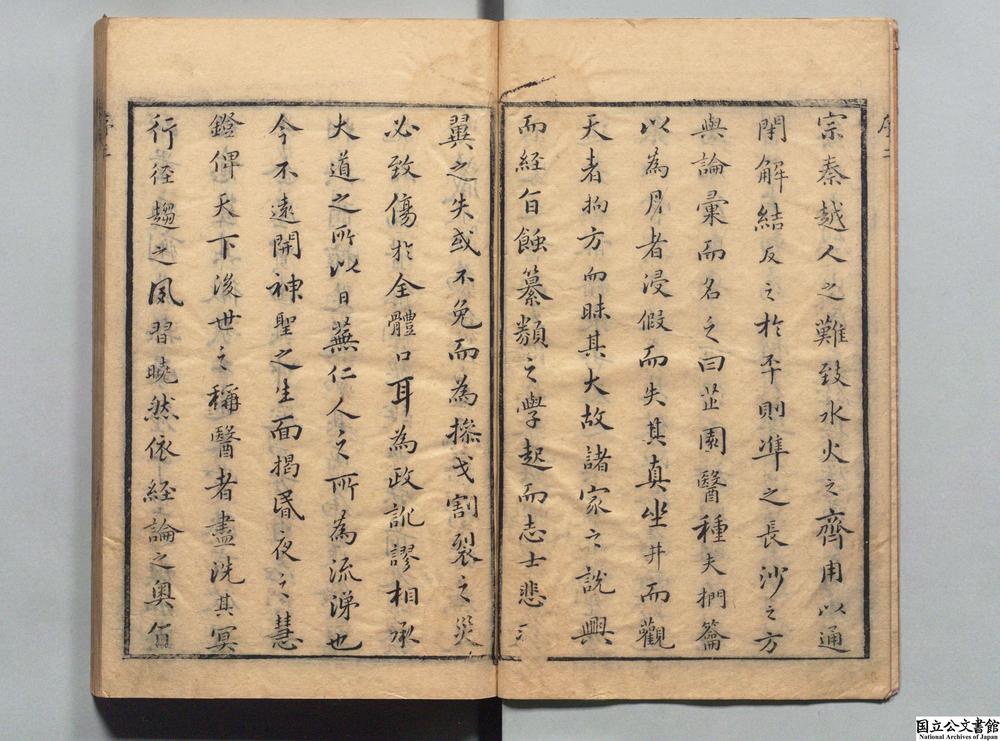 宗秦越人之難致水火之齊用以通
閉解結反之於平則準之長沙之方
與論彙而名之曰芷園醫種夫捫籥
以為月者浸假而失其真坐井而觀
天者拘方而昧其大故諸家之說興
而經旨蝕纂類之學起而志士悲
翼之失或不免而為操戈割裂之災
必致傷於全體口耳為政訛謬相承
大道之所以日蕪仁人之所為流涕也
今不遠開神聖之生面揭昏夜之慧
鐙俾天下後世之稱醫者盡洗其冥
行徑趨之風習曉然依經論之奧旨
国立公文書館
National Archives of Japan